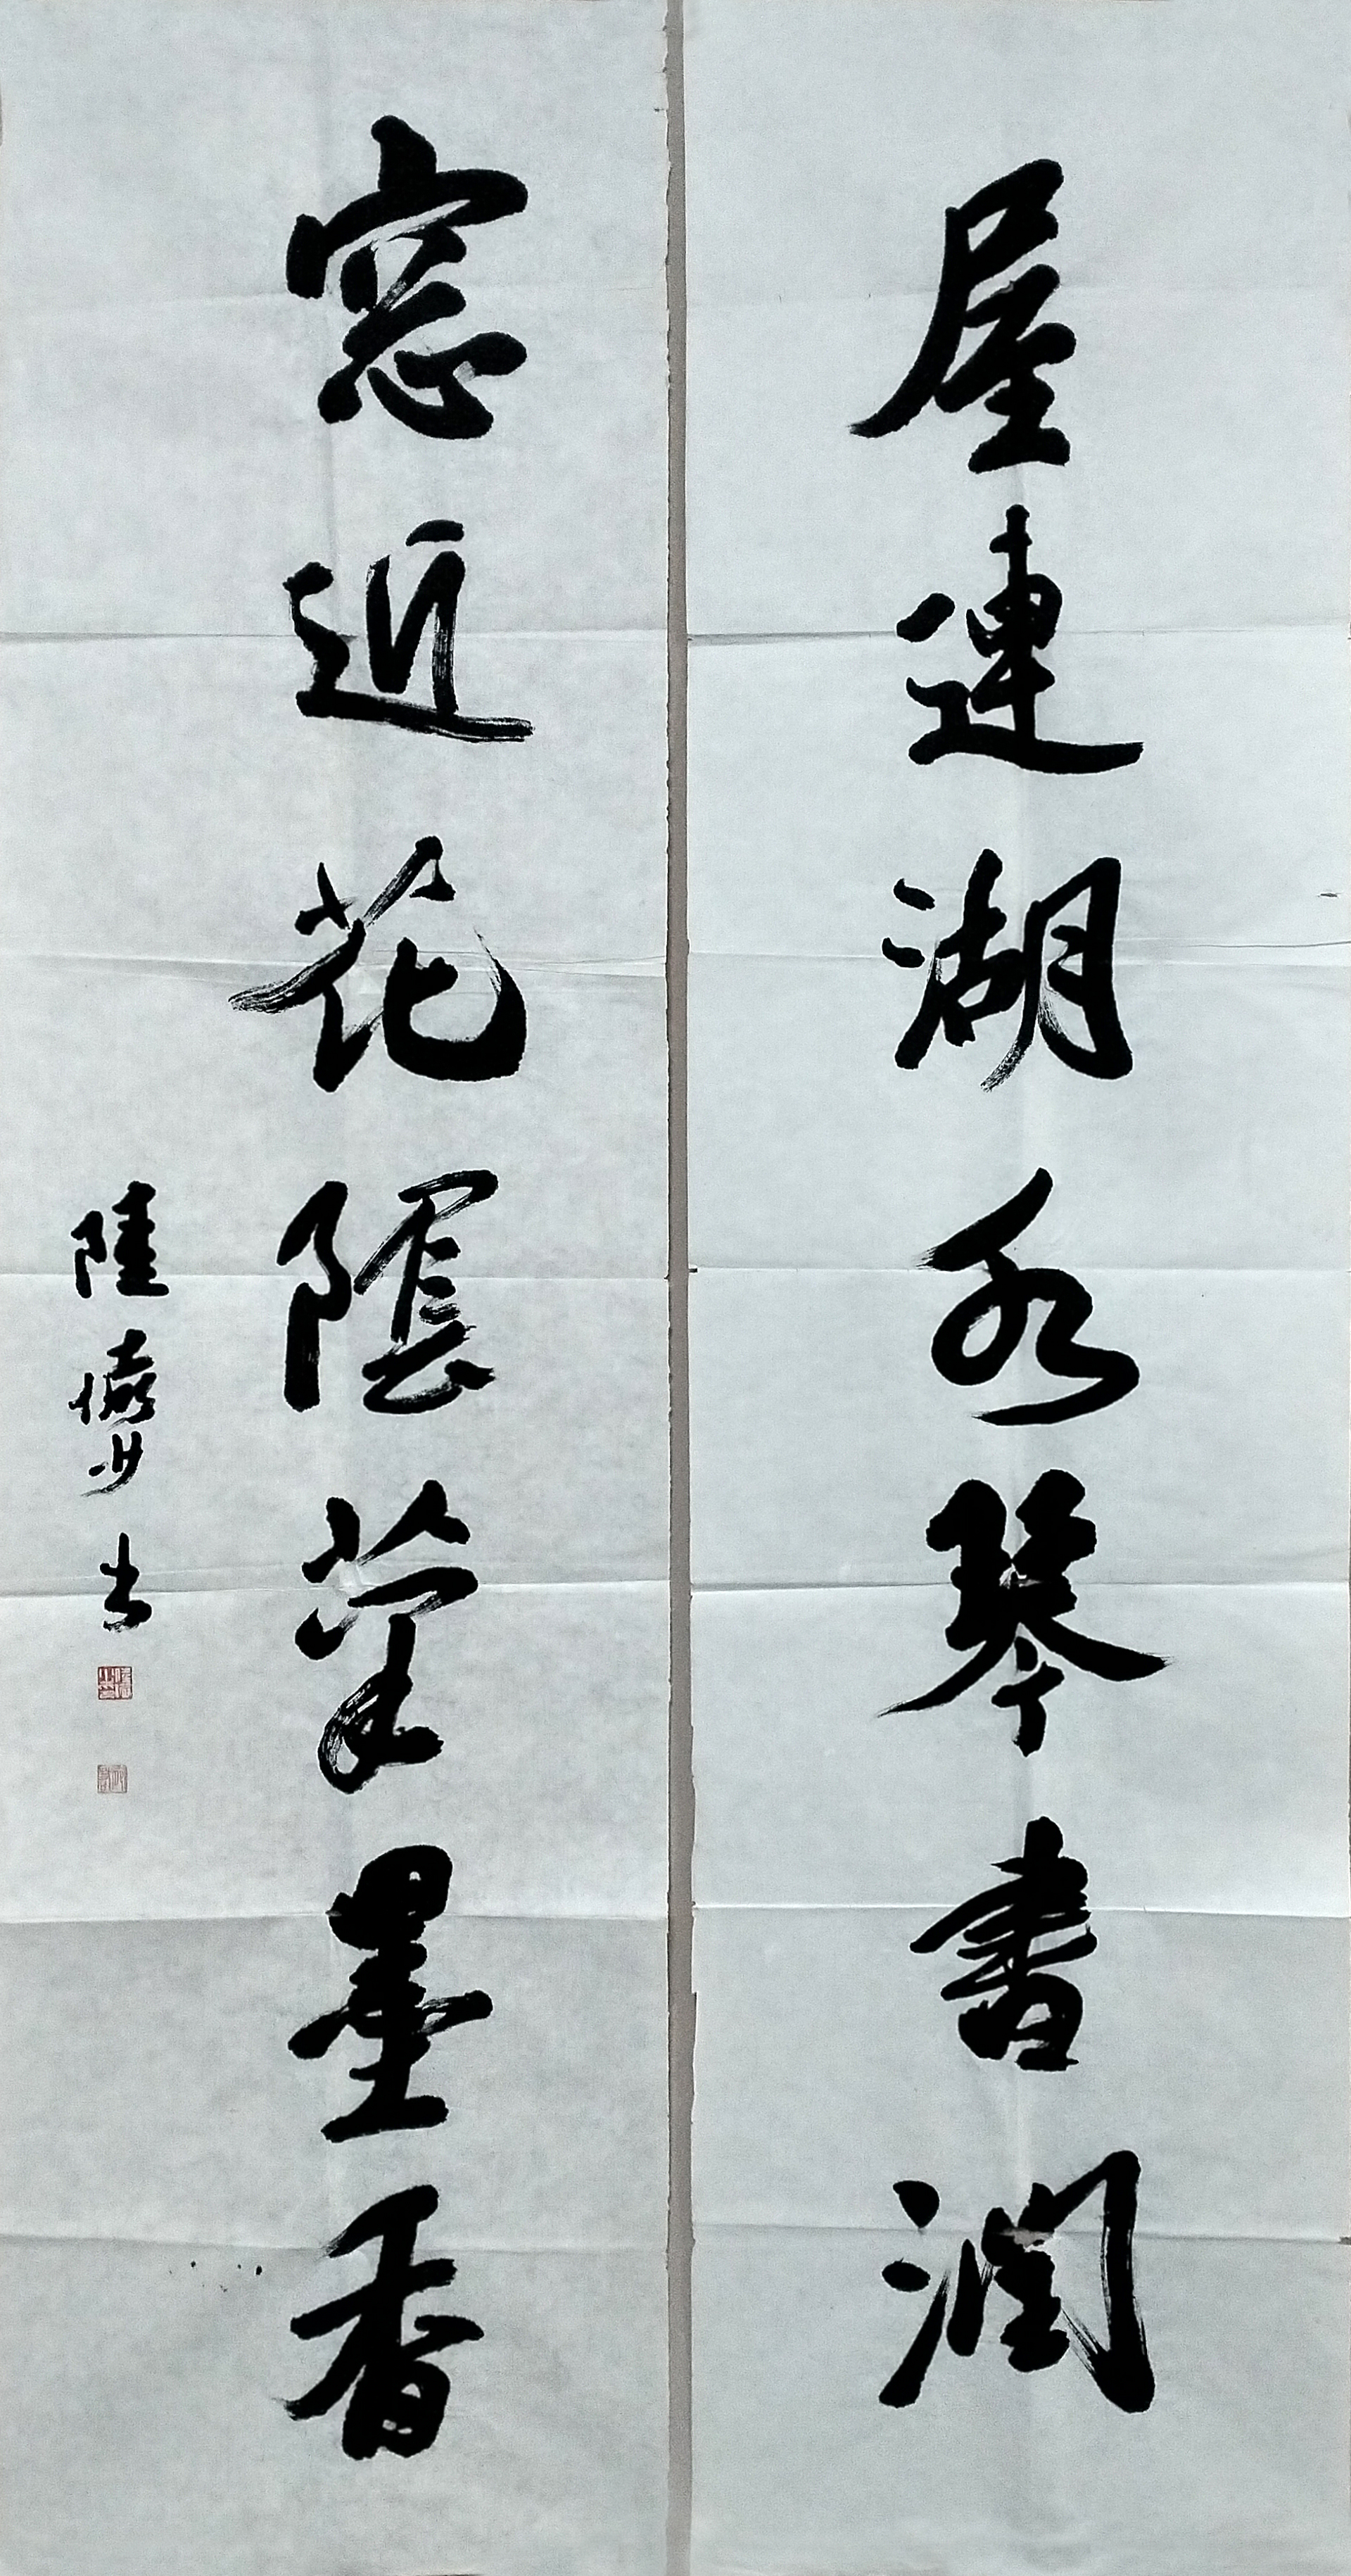 屋連湖水琴書潤
窓近花陰筆墨香
陸儼少書